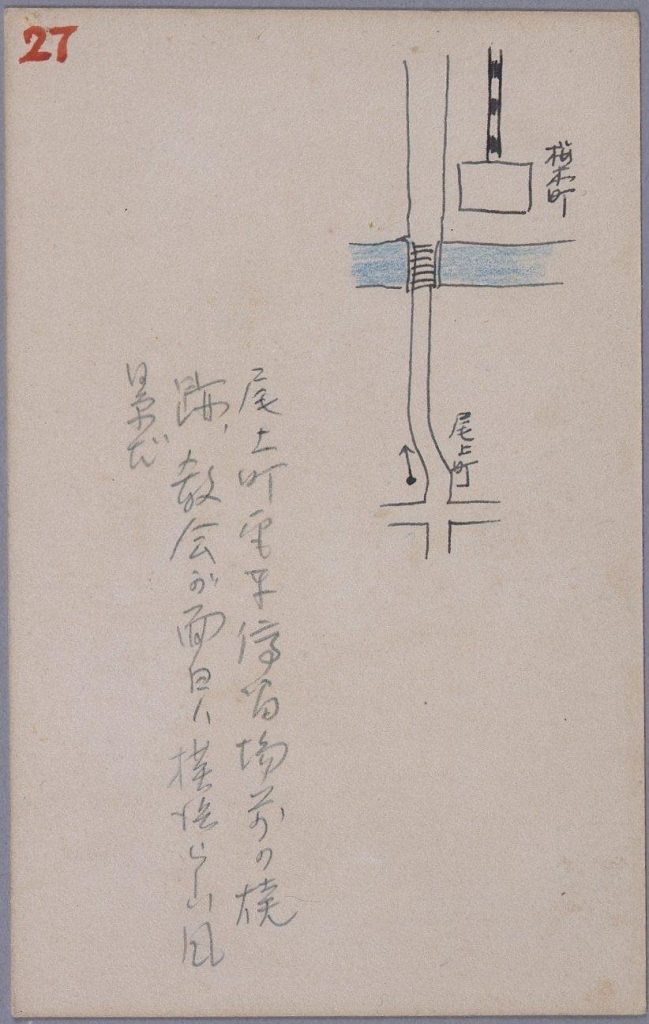 27
桜木町
尾上町
尾上町電車停留場前の焼
跡、教会が面白い横浜らしい風
景だ